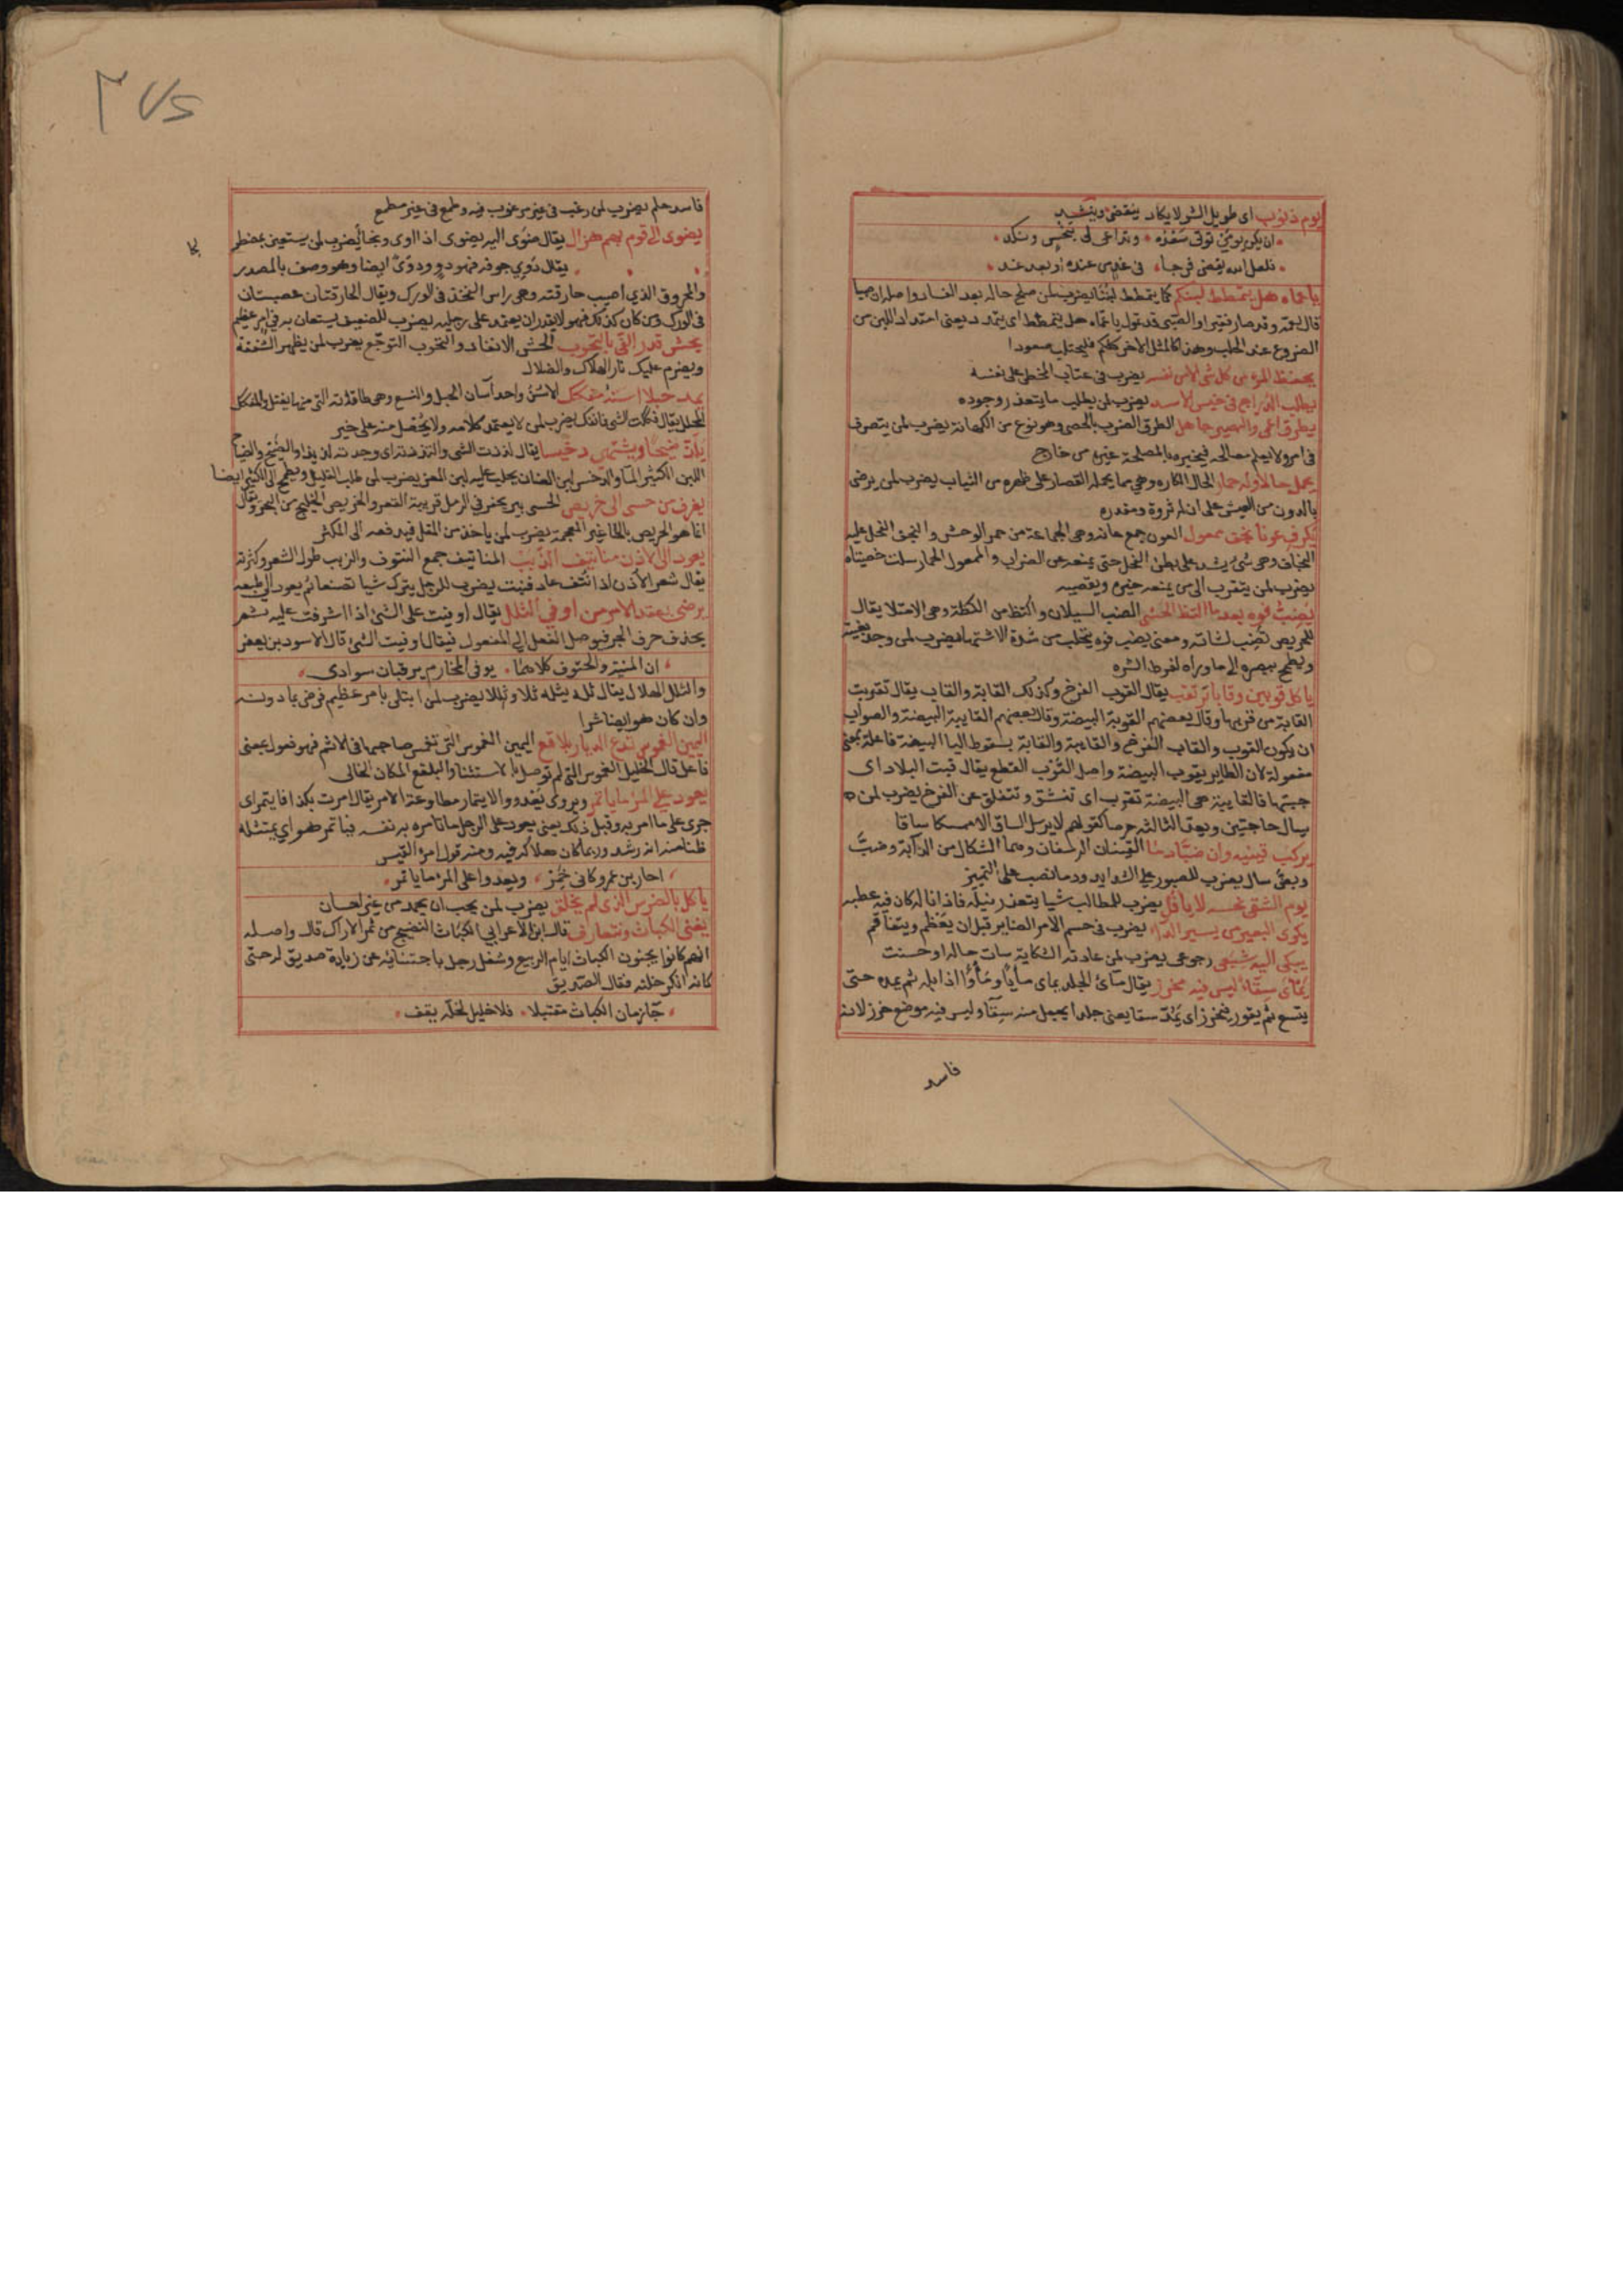 يوم ذنوب اى طويل الشر لا يكاد ينقضى وينشد
ان يكن يومى تولى سعده وتداعى لى بنحس ونكد
فلعل الله يقضى فرجا فى غد من عنده او بعد غد
يا عماه هل يتمطط لبنكم كما يتمطط لبننا يضرب لمن صلح حاله بعد الفساد واصله ان صبيا
قال لعمه وقد صار فقيرا والصبى قد تمول يا عماه هل يتمطط اى يتمدد يعنى امتداد اللبن من
الضروع عند الحلب وهذا كالمثل الاخر كلكم فليحتلب صعودا
يحتفظ المرء من كل شى الا من نفسه يضرب فى عتاب المخطى على نفسه
يطلب الدراج فى خيس الاسد يضرب لمن يطلب ما يتعذر وجوده
يطرق اعمى والبصير جاهل الطرق الضرب بالحصى وهو نوع من الكهانة يضرب لمن يتصرف
فى امر ولا يعلم مصالحه فيخبره بالمصلحة غيره من خارج
يحمل حالا وله حمار الحال الكاره وهى ما يحمله القصار على ظهره من الثياب يضرب لمن يرضى
بالدون من العيش على ان له ثروة ومقدره
يكرف عونا نجق ممعول العون جمع عانه وهى الجماعة من حمر الوحش والنجق الفحل عليه
النجاف وهى شى يشد على بطن الفحل حتى يمنعه عن الضراب والممعول الحمار سلت خصيتاه
يضرب لمن يتقرب الى من يمنعه خيره ويقصيه
يضب فوه بعد ما اكتظ الحشى الضب السيلان واكتظ من الكظة وهى الامتلا يقال
للحريص تضب لثاته ومعنى يضب فوه يتحلب من شدة الاشتها يضرب لمن وجد بغيته
ويطمح ببصره الى ما وراه لفرط الشره
يا كل قوبين وقابا ترتقب يقال القوب الفرخ وكذلك القابة والقاب يقال تقوبت
القابة من قوبها وقال بعضهم القوبة البيضة وقال بعضهم القايبة البيضة والصواب
ان يكون القوب والقاب الفرخ والقايبة والقابة بسقوط اليا البيضة فاعلة بمعنى
مفعولة لان الطاير يقوب البيضة واصل القوب القطع يقال قبت البلاد اى
جبتها فالقايبة هى البيضة تقوب اى تنشق وتتفلق عن الفرخ يضرب لمن
يسال حاجتين ويعد الثالثة حرصا كقولهم لا يرسل الساق الا ممسكا ساقا
يركب قينيه وان ضبا دما القينان الرسغان وهما الشكال من الدابة وضب
وبض سال يضرب للصبور على الشدايد ودما نصب على التمييز
يوم الشقى نحسه لا يافل يضرب للطالب شيا يتعذر نيله فاذا ناله كان فيه عطبه
يكوى البعير من يسير الداء يضرب فى حسم الامر الضاير قبل ان يعظم ويتفاقم
يبكى اليه شبعى رجوعى يضرب لمن عادته الشكاية سات حاله او حسنت
يماى سقاء ليس فيه مخرز يقال ماى الجلد يماى مايا وماوا اذا بله ثم يمده حتى
يتسع ثم يقور فيخرز اى يمد سقا يعنى جلدا يجعل منه سقا وليس فيه موضع خرز لانه
فاسد
فاسد حلم يضرب لمن رغب فى غير مرغوب فيه وطمع فى غير مطمع
يضوى الى قوم بهم هزال يقال ضوى اليه يضوى اذا اوى ونجا يضرب لمن يستعين بمضطر
يقال دوى جوفه فهو دو ودوى ايضا وهو وصف بالمصدر
والمحروق الذى اصيب حارقته وهى راس الفخذ فى الورك ويقال الحارقتان عصبتان
فى الورك ومن كان كذلك فهو لا يقدر ان يعتمد على رجليه يضرب للضعيف يستعان به فى امر عظيم
يحش قدر الغى بالتحوب الحش الايقاد والتحوب التوجع يضرب لمن يظهر الشفقة
ويضرم عليك نار الهلاك والضلال
يمد حبلا اسنه متفكك الاسن واحد آسان الحبل والنسع وهى طاقاته التى منها يفتل والمتفكك
المتحلل يقال فككت الشى فانفك يضرب لمن لا يعتمد كلامه ولا يحصل منه على خير
يلذ ضيحا ويشتهى دخيسا يقال لذذت الشى والتذذته اى وجدته لذيذا والضيح والضياح
اللبن الكثير الما والدخيس لبن الضان يحلب عليه لبن المعز يضرب لمن طلب القليل ويطمح الى الكثير ايضا
يغرف من حسى الى خريص الحسى بير يحفر فى الرمل قريبة القعر والخريص الخليج من البحر ويقال
انما هو الحريص بالحا غير المعجمة يضرب لمن ياخذ من المقل فيدفعه الى المكثر
يعود الى الاذن مناتيف الزبب المناتيف جمع المنتوف والزبب طول الشعر وكثرته
يقال شعر الاذن اذا نتف عاد فنبت يضرب للرجل يترك شيا تصنعا ثم يعود الى طبعه
يرضى بعقد الاسر من اوفى الثلل يقال اوفيت على الشئ اذا اشرفت عليه ثم
يحذف حرف الجر فيوصل الفعل الى المفعول فيقال اوفيت الشئ قال الاسود بن يعفر
ان المنية والحتوف كلاهما يوفى المخارم يرقبان سوادى
والثلل الهلال يقال ثله يثله ثلا وثللا يضرب لمن ابتلى بامر عظيم فرضى بما دونه
وان كان هو ايضا شرا
اليمين الغموس تدع الديار بلاقع اليمين الغموس التى تغمس صاحبها فى الاثم فهو فعول بمعنى
فاعل قال الخليل الغموس التى لم توصل بالاستثنا والبلقع المكان الخالى
يعود على المرء ما ياتمر ويروى يغدو والايتمار مطاوعة الامر يقال امرت بكذا فايتمر اى
جرى على ما امر به وقبل ذلك يعنى يعود على الرجل ما تامره به نفسه فياتمر هو اى يمتثله
ظنا منه انه رشد وربما كان هلاكه فيه ومنه قول امرء القيس
احار بن عمرو كانى خمر ويعدوا على المرء ما ياتمر
ياكل بالضرس الذى لم يخلق يضرب لمن يحب ان يحمد من غير احسان
يغنى الكباث ونتعارف قال ابن الاعرابى الكباث النضيج من ثمر الاراك قال واصله
انهم كانوا يجنون الكباث ايام الربيع وشغل رجل باجتنائه عن زيارة صديق له حتى
كانه انكر خلته فقال الصديق
جآ زمان الكباث مقتبلا فلا خليل لخله يقف